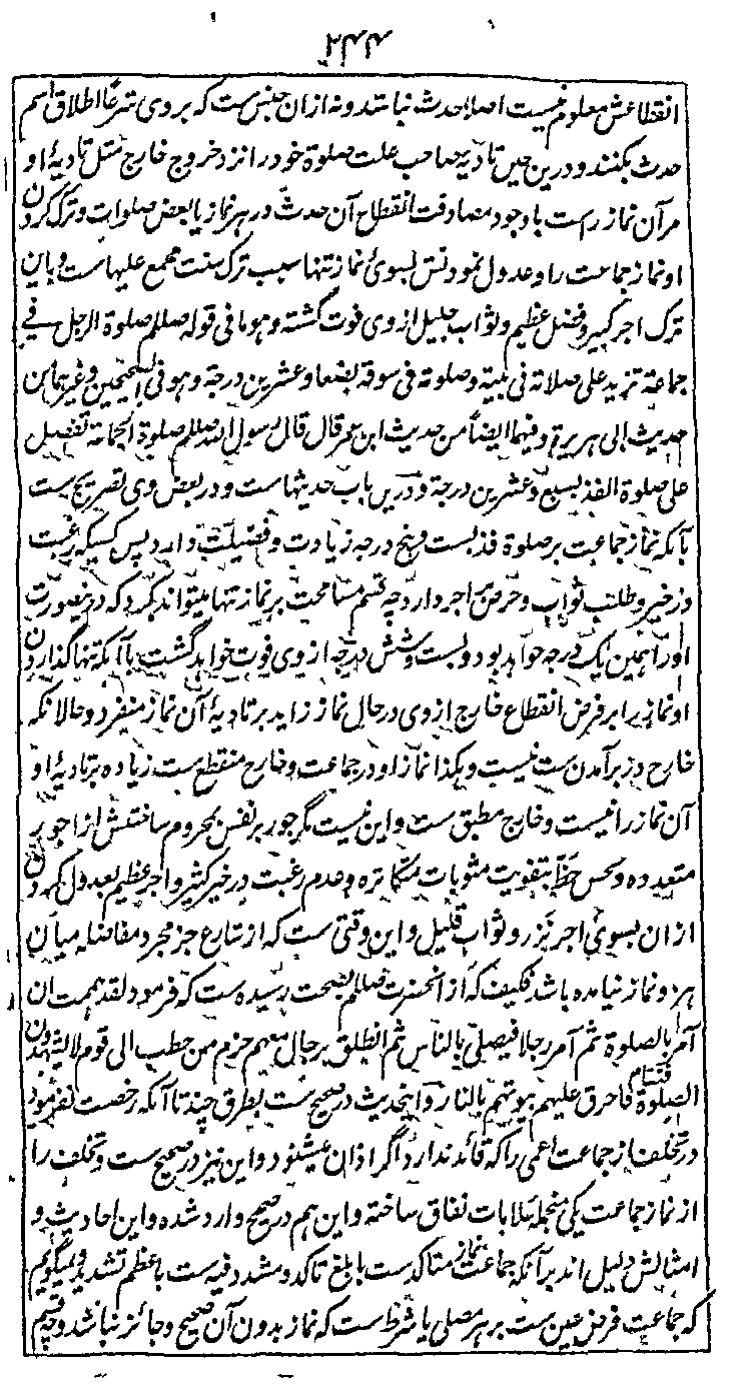 ۲۴۴
انقطاعش معلوم نیست اصلا حدث نباشد و نه ازان جنس ست که بروی شرعًا اطلاق اسم
حدث بکنند و درین حین تادیه صاحب علت صلوة خود را نزد خروج خارج مثل تادیۀ او
مر آن نماز راست باوجود مصادفت انقطاع آن حدث در هر نماز یا بعض صلوات و ترک کردن
او نماز جماعت را و عدول نمودنش بسوی نماز تنها سبب ترک سنت مجمع علیها ست و باین
ترک اجر کبیر و فضل عظیم و ثواب جلیل از وی فوت گشته و هو ما فی قوله صللم صلوة الرجل فی
جماعة تزید علی صلاته فی بیته و صلوته فی سوقه بضعا و عشرین درجة و هو فی الصحیحین و غیرهما من
حدیث ابی هریرة و فیهما ایضا من حدیث ابن عمر قال قال رسول الله صللم صلوة الجماعة تفضل
علی صلوة الفذ بسبع و عشرین درجة و درین باب حدیثهاست و در بعض وی تصریح ست
بآنکه نماز جماعت بر صلوة فذ بست و پنج درجه زیادت و فضیلت دارد پس کسیکه رغبت
در خیر و طلب ثواب و حرص بر اجر دارد چه قسم مسامحت بر نماز تنها میتواند کرد که درینصورت
او را همین یک درجه خواهد بود و بست و شش درجه از وی فوت خواهد گشت با آنکه تنها گذاردن
او نماز را بر فرض انقطاع خارج از وی در حال نماز زاید بر تادیۀ آن نماز منفرد و حالانکه
خارج در برآمدن ست نیست و هکذا نماز او در جماعت و خارج منقطع ست زیاده بر تادیۀ او
آن نماز را نیست و خارج مطبق ست و این نیست مگر جور بر نفس بمحروم ساختنش از اجور
متعدده و بخس حظ بتفویت مثوبات متکاثره و عدم رغبت در خیر کثیر و اجر عظیم بعدول کردن
ازان بسوی اجر نزر و ثواب قلیل و این وقتی ست که از شارع جز مجرد مفاضله میان
هر دو نماز نیامده باشد فکیف که از آنحضرت صللم بصحت رسیده ست که فرمود لقد هممت ان
آمر بالصلوة ثم آمر رجلا فیصلی بالناس ثم انطلق برجال معهم حزم من حطب الی قوم لا یشهدون
الصلوة فتقام فاحرق علیهم بیوتهم بالنار و اینحدیث در صحیح ست بطرق چند تا آنکه رخصت نفرمود
در تخلف از جماعت اعمی را که قائد ندارد اگر اذان میشنود و این نیز در صحیح ست و تخلف را
از نماز جماعت یکی منجمله علامات نفاق ساخته و این هم در صحیح وارد شده و این احادیث و
امثالش دلیل اند بر آنکه جماعت نماز متاکد ست بابلغ تاکد و مشدد فیه ست باعظم تشدید و نمیگویم
که جماعت فرض عین ست بر هر مصلی یا شرط ست که نماز بدون آن صحیح و جائز نباشد و چه قسم